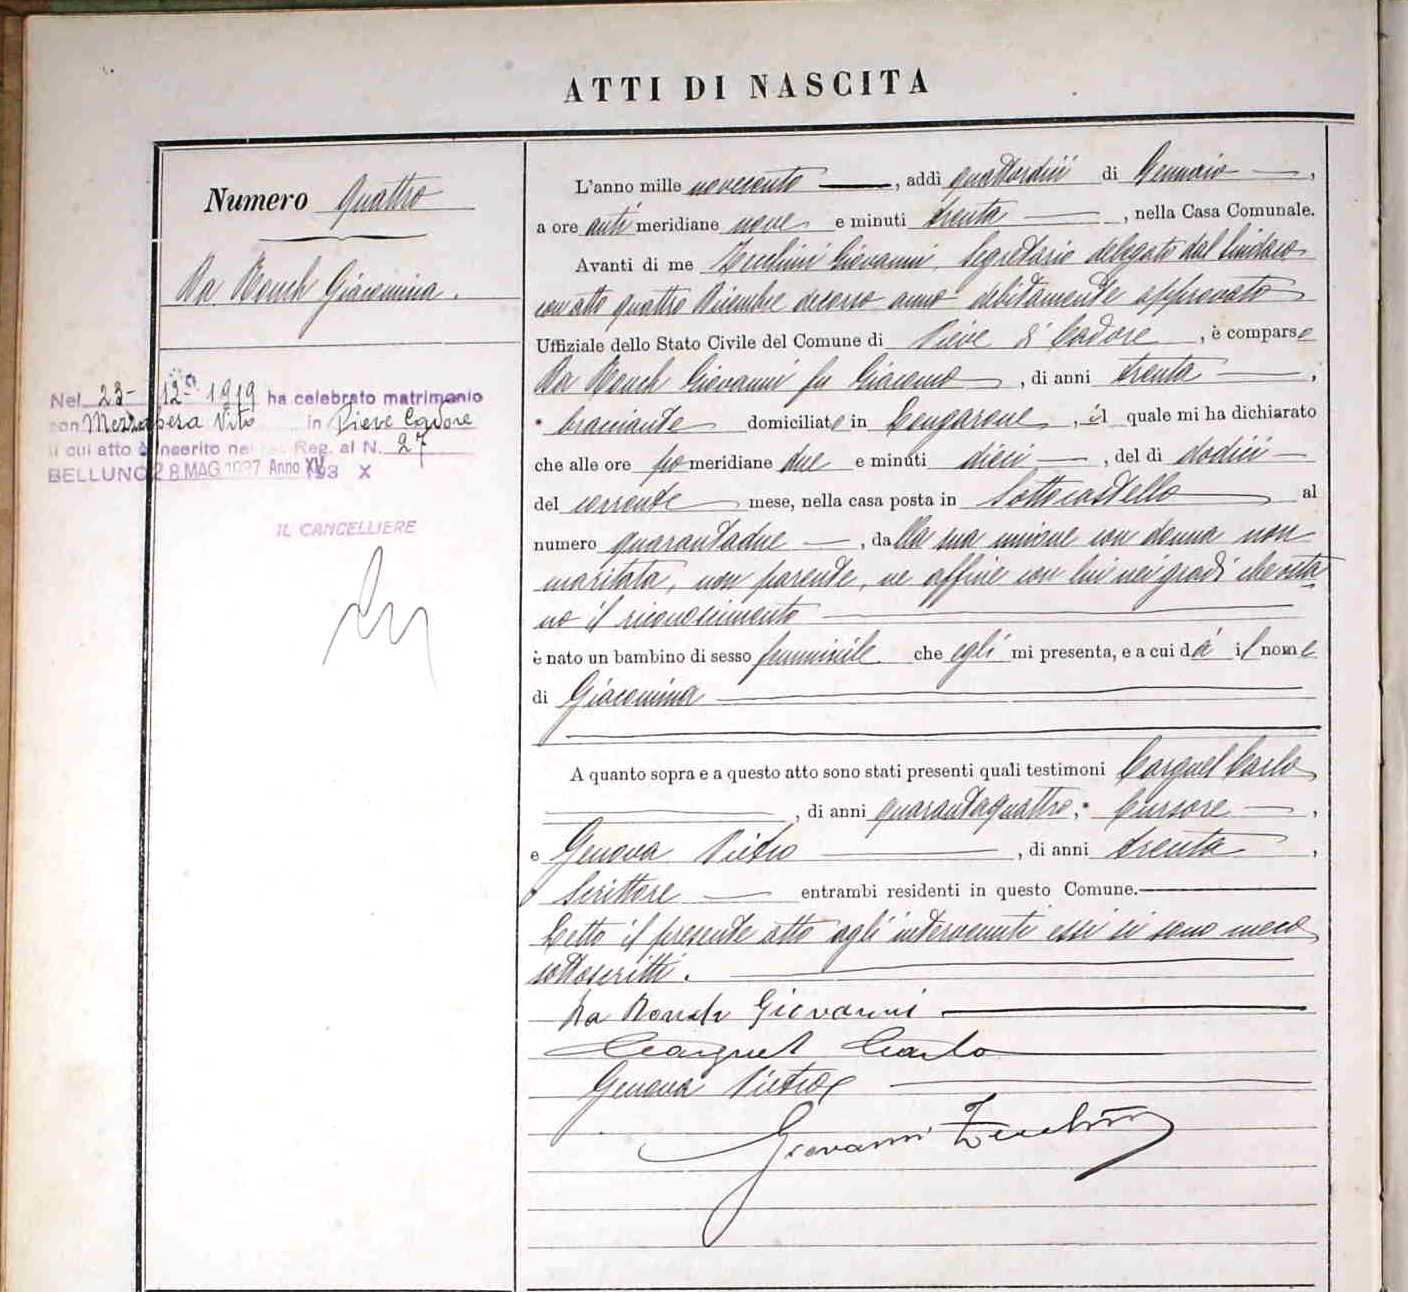 ATTI DI NASCITA
Numero Quattro
Da Ronch Giacomina.
Nel 23-12-1919 ha celebrato matrimonio
con Mezzapesa Vito in Pieve Cadore
il cui atto è inserito nel Reg. al N. 27
BELLUNO 28 MAG 1937 Anno XV
IL CANCELLIERE
L'anno mille novecento, addì quattordici di Gennaio,
a ore anti meridiane nove e minuti trenta, nella Casa Comunale.
Avanti di me Zecchini Giovanni, Segretario delegato dal Sindaco
con atto quattro Dicembre decorso anno debitamente approvato
Uffiziale dello Stato Civile del Comune di Pieve di Cadore, è comparso
Da Ronch Giovanni fu Giacomo, di anni trenta,
bracciante domiciliato in Longarone, il quale mi ha dichiarato
che alle ore po meridiane due e minuti dieci, del dì dodici
del corrente mese, nella casa posta in Sottocastello al
numero quarantadue, dalla sua unione con donna non
maritata, non parente, ne affine con lui nei gradi che osta
no il riconoscimento
è nato un bambino di sesso femminile che egli mi presenta, e a cui dà il nome
di Giacomina
A quanto sopra e a questo atto sono stati presenti quali testimoni Carguel Carlo
, di anni quarantaquattro, Cursore,
e Genova Pietro, di anni trenta,
Scrittore entrambi residenti in questo Comune.
Letto il presente atto agli intervenuti essi si sono meco
sottoscritti.
Da Ronch Giovanni
Carguel Carlo
Genova Pietro
Giovanni Zecchini